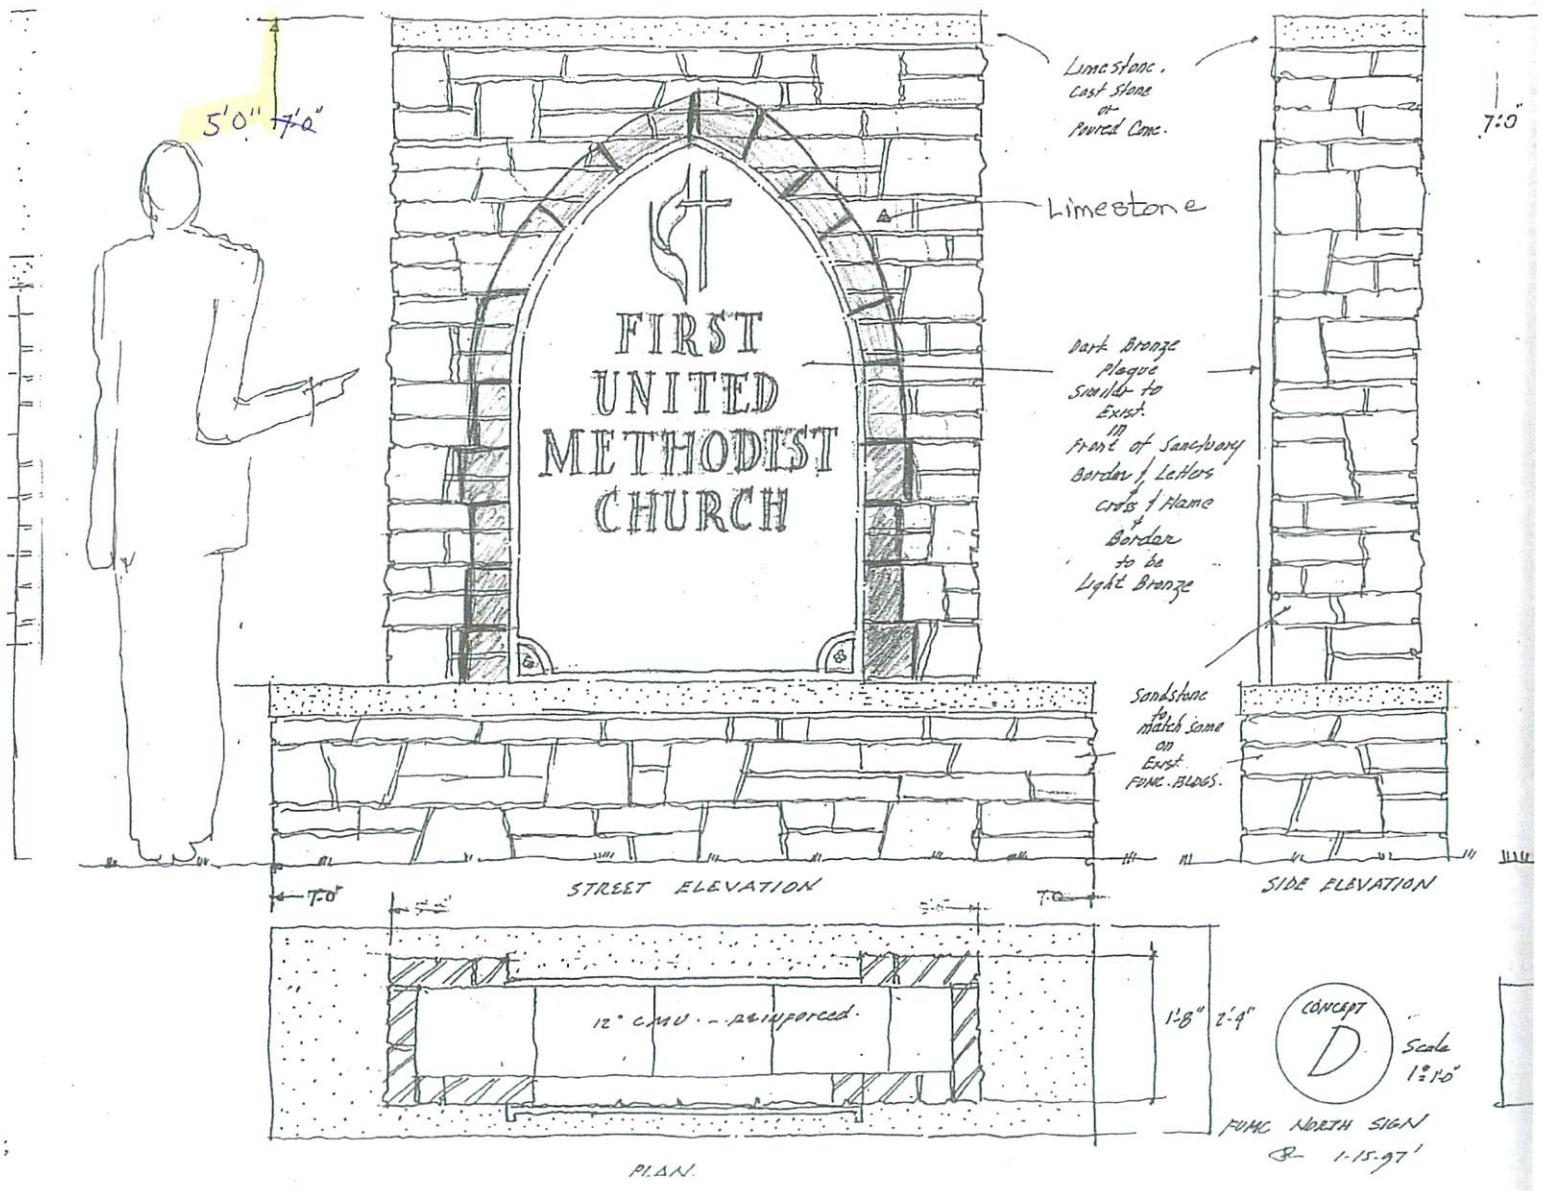 5'0" 7'-0"
Limestone,
Cast Stone
or
Poured Conc.
7'-0"
Limestone
FIRST
UNITED
METHODIST
CHURCH
Dark Bronze
Plaque
Similar to
Exist.
in
Front of Sanctuary
Border & Letters
&
Cross & Flame
&
Border
to be
Light Bronze
Sandstone
to
match same
on
Exist.
FUMC. BLDGS.
STREET ELEVATION
SIDE ELEVATION
7'-0" 7'-0"
12" C.M.U. - Reinforced.
1'-8" 2'-4"
CONCEPT
D
Scale
1"=1'-0"
FUMC NORTH SIGN
1-15-97'
PLAN.